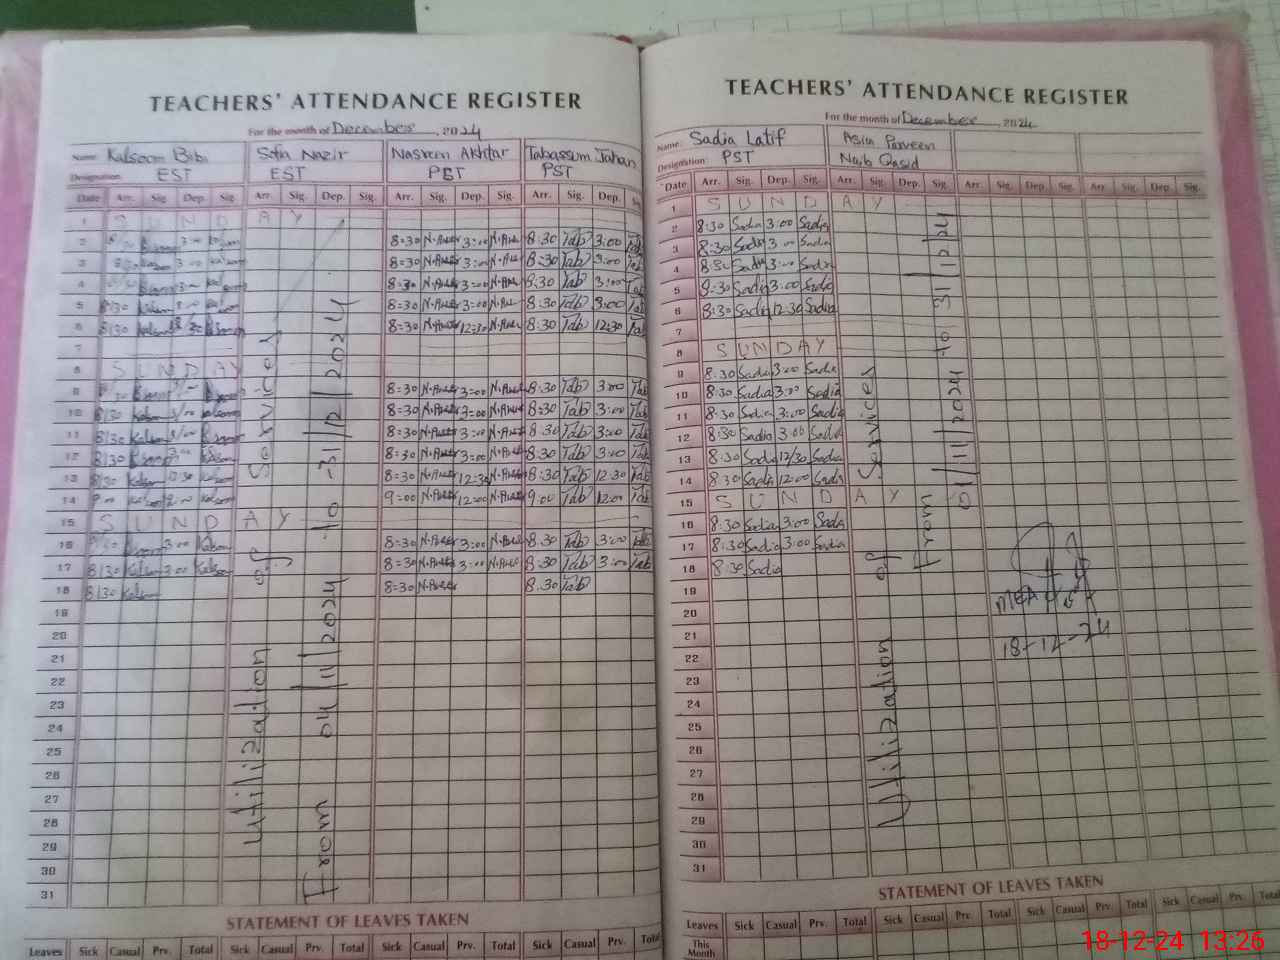 TEACHERS' ATTENDANCE REGISTER
For the month of December, 2024
Name: Kalsoom Bibi Sofia Nazir Nasreen Akhtar Tabassum Jahan
Designation: EST EST PST PST
Date Arr. Sig. Dep. Sig. Arr. Sig. Dep. Sig. Arr. Sig. Dep. Sig. Arr. Sig. Dep.
1 SUNDAY
2 3:00 8=30 3=00 8:30 Tab 3:00 Tab
3 8/30 3:00 8=30 3=00 8:30 Tab 3:00 Tab
4 8=30 3=00 8:30 Tab 3:00 Tab
5 8/30 8=30 3=00 8:30 Tab 3:00 Tab
6 8/30 8=30 12=30 8:30 Tab 12:30 Tab
7
8 SUNDAY
9 8=30 3=00 8:30 Tab 3:00 Tab
10 8/30 3/00 8=30 3=00 8:30 Tab 3:00 Tab
11 8/30 3/00 8=30 3=00 8:30 Tab 3:00 Tab
12 8/30 3:00 8=30 3=00 8:30 Tab 3:00 Tab
13 8/30 12:30 8=30 12=30 8:30 Tab 12:30 Tab
14 9:00 9=00 12=00 9:00 Tab 12:00 Tab
15 SUNDAY
16 3:00 8=30 3=00 8:30 Tab 3:00 Tab
17 8/30 3:00 8=30 3=00 8:30 Tab 3:00 Tab
18 8/30 8=30 8:30 Tab
19
20
21
22
23
24
25
26
27
28
29
30
31
Utilization of Services
From 04/11/2024 to 31/12/2024
STATEMENT OF LEAVES TAKEN
Leaves Sick Casual Prv. Total Sick Casual Prv. Total Sick Casual Prv. Total Sick Casual Prv. Total
TEACHERS' ATTENDANCE REGISTER
For the month of December, 2024
Name: Sadia Latif Asia Parveen
Designation: PST Naib Qasid
Date Arr. Sig. Dep. Sig. Arr. Sig. Dep. Sig. Arr. Sig. Dep. Sig. Arr. Sig. Dep. Sig.
1 SUNDAY
2 8:30 Sadia 3:00 Sadia
3 8:30 Sadia 3:00 Sadia
4 8:30 Sadia 3:00 Sadia
5 8:30 Sadia 3:00 Sadia
6 8:30 Sadia 12:30 Sadia
7
8 SUNDAY
9 8:30 Sadia 3:00 Sadia
10 8:30 Sadia 3:00 Sadia
11 8:30 Sadia 3:00 Sadia
12 8:30 Sadia 3:00 Sadia
13 8:30 Sadia 12/30 Sadia
14 8:30 Sadia 12:00 Sadia
15 SUNDAY
16 8:30 Sadia 3:00 Sadia
17 8:30 Sadia 3:00 Sadia
18 8:30 Sadia
19
20
21
22
23
24
25
26
27
28
29
30
31
Utilization of Services
From 01/11/2024 to 31/12/24
18-12-24
STATEMENT OF LEAVES TAKEN
Leaves Sick Casual Prv. Total Sick Casual Prv. Total Sick Casual Prv. Total Sick Casual Prv. Total
This Month
18-12-24 13:26